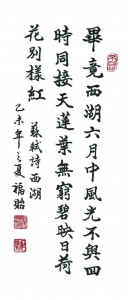 畢竟西湖六月中風光不與四
時同接天蓮葉無窮碧映日荷
花別樣紅 蘇軾詩西湖
乙未年之夏 福貽